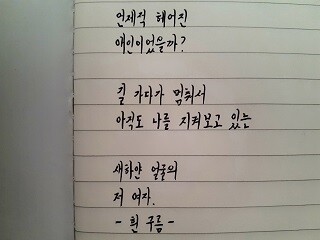 언제적 헤어진
애인이었을까?
길 가다가 멈춰서
아직도 나를 지켜보고 있는
새하얀 얼굴의
저 여자.
- 흰 구름 -